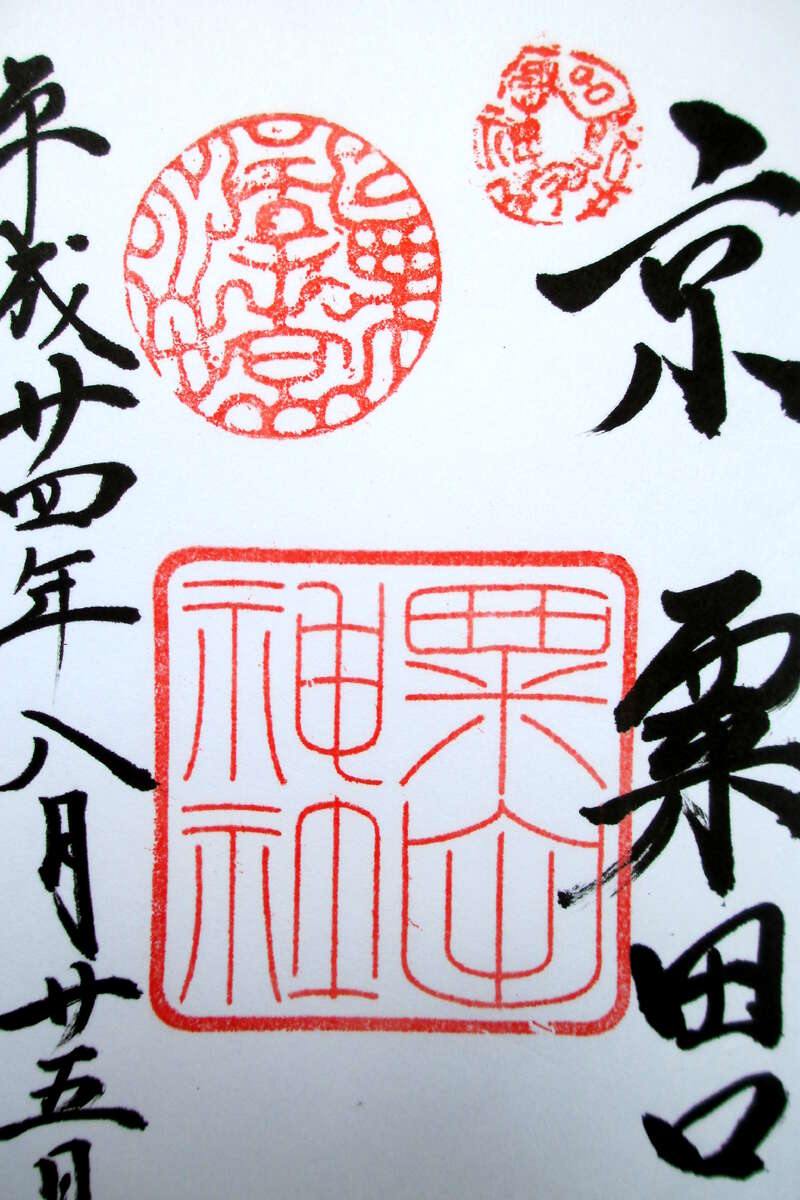 京 粟田口
粟田
神社
平成廿四年八月廿五日